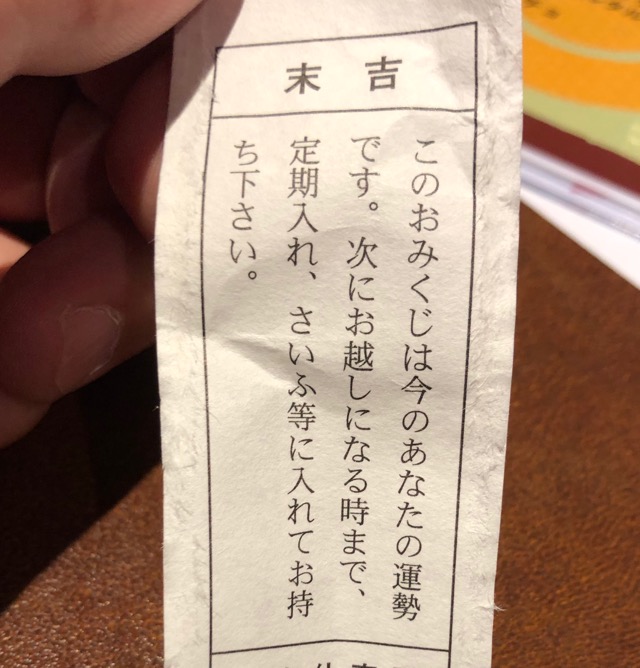 末吉
このおみくじは今のあなたの運勢
です。次にお越しになる時まで、
定期入れ、さいふ等に入れてお持
ち下さい。